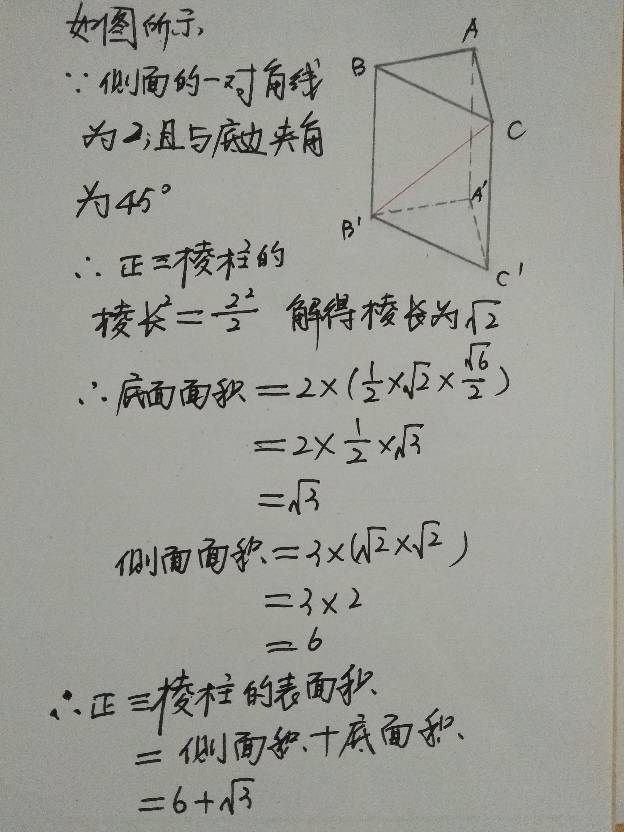 如图所示,
∵侧面的一对角线
为2,且与底边夹角
为45°
∴正三棱柱的
棱长²=2²/2 解得棱长为√2
∴底面面积=2×(1/2×√2×√6/2)
=2×1/2×√3
=√3
侧面面积=3×(√2×√2)
=3×2
=6
∴正三棱柱的表面积
=侧面面积+底面面积
=6+√3
A
B
C
A'
B'
C'